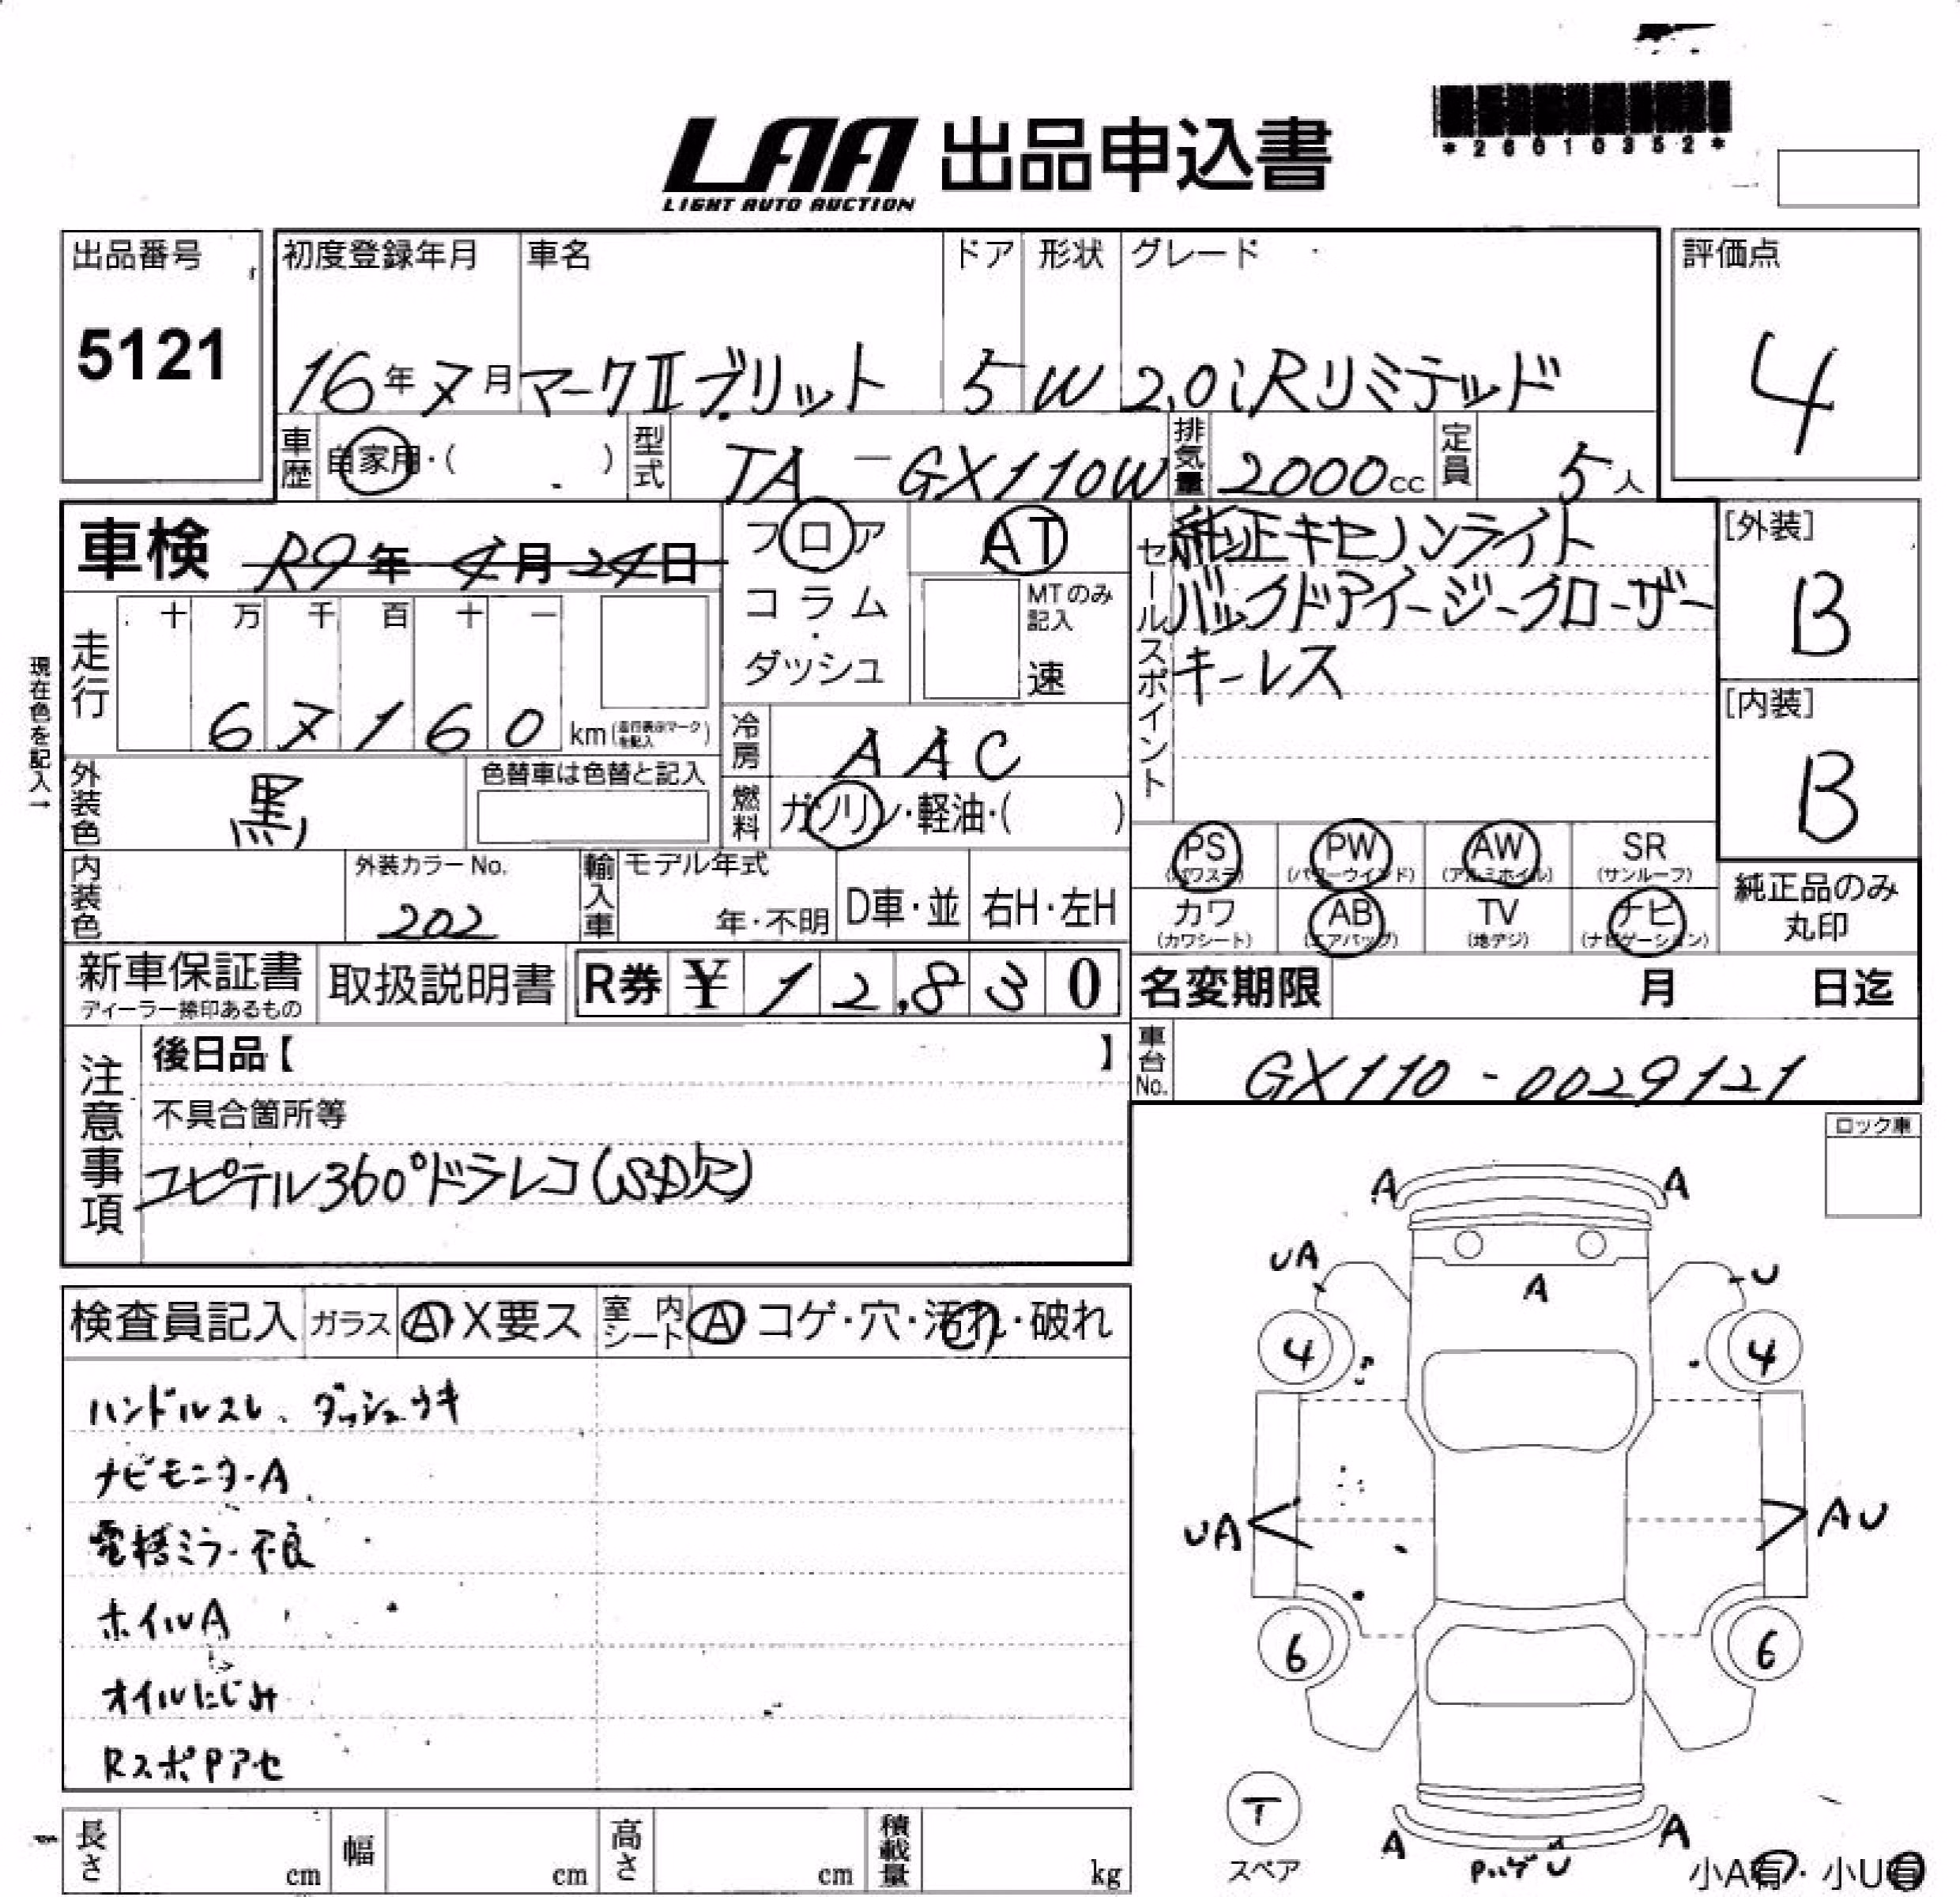 *26010352*
LAA 出品申込書
LIGHT AUTO AUCTION
出品番号 5121
初度登録年月 16年7月
車名 マークⅡブリット
ドア 5
形状 W
グレード 2.0iRリミテッド
評価点 4
車歴 自家用・( )
型式 TA-GX110W
排気量 2000cc
定員 5人
車検 R9年4月24日
フロア
コラム
・
ダッシュ
AT
MTのみ記入
速
セールスポイント
純正キセノンライト
バックドアイージークローザー
キーレス
[外装]
B
[内装]
B
現在色を記入→
走行
十 万 千 百 十 一
6 7 1 6 0 km(走行表示マークを記入)
冷房 AAC
外装色 黒
色替車は色替と記入
燃料 ガソリン・軽油・( )
内装色
外装カラーNo.
202
輸入車
モデル年式
年・不明
D車・並
右H・左H
PS (パワステ)
PW (パワーウインド)
AW (アルミホイル)
SR (サンルーフ)
カワ (カワシート)
AB (エアバッグ)
TV (地デジ)
ナビ (ナビゲーション)
純正品のみ
丸印
新車保証書
ディーラー捺印あるもの
取扱説明書
R券 ¥12,830
名変期限 月 日迄
車台No. GX110-0029121
注意事項
後日品【 】
不具合箇所等
ユピテル360°ドラレコ(SD欠)
ロック車
検査員記入 ガラス A X要ス 室内シート A コゲ・穴・汚れ・破れ
ハンドルスレ、ダッシュウキ
ナビモニターA
電格ミラー不良
ホイルA
オイルにじみ
RスポPアセ
A A
UA U
A
4 4
UA AU
6 6
T
スペア
A A
U
小A有・小U有
長さ cm 幅 cm 高さ cm 積載量 kg